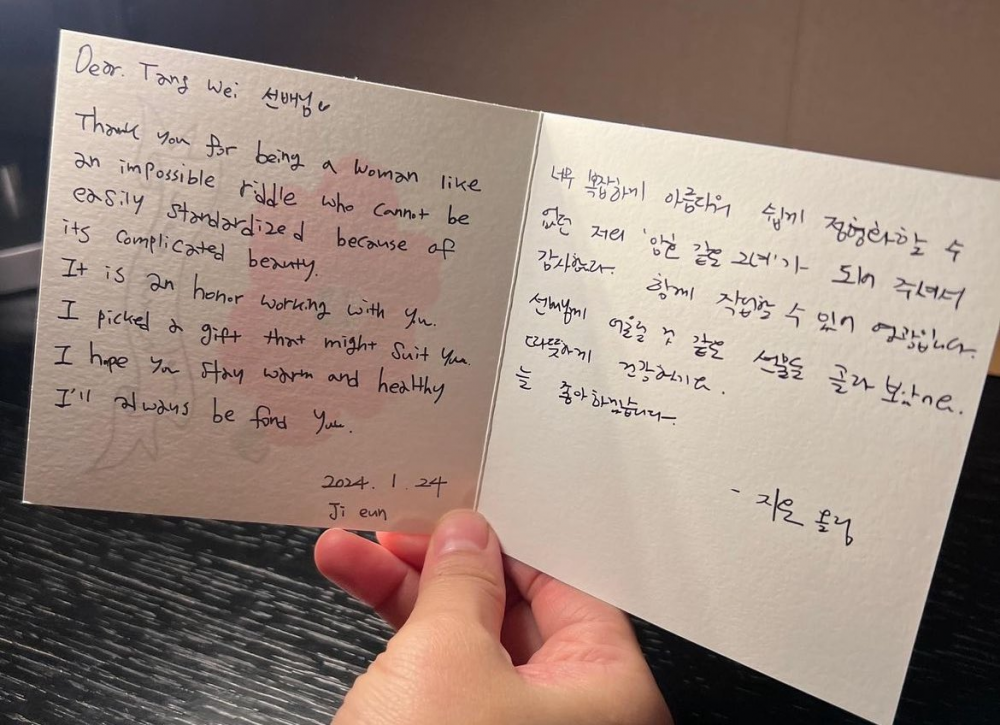 Dear. Tang Wei 선배님
Thank you for being a woman like
an impossible riddle who cannot be
easily standardized because of
its complicated beauty.
It is an honor working with you.
I picked a gift that might suit you.
I hope you stay warm and healthy
I'll always be fond you.
2024. 1. 24
Ji eun
너무 복잡하게 아름다워 쉽게 정형화할 수
없던 저의 '암호 같은 그녀'가 되어 주셔서
감사했어요. 함께 작업할 수 있어 영광입니다.
선배님께 어울릴 것 같은 선물을 골라 보았어요.
따뜻하게 건강하기요.
늘 좋아하겠습니다-
- 지은 올림